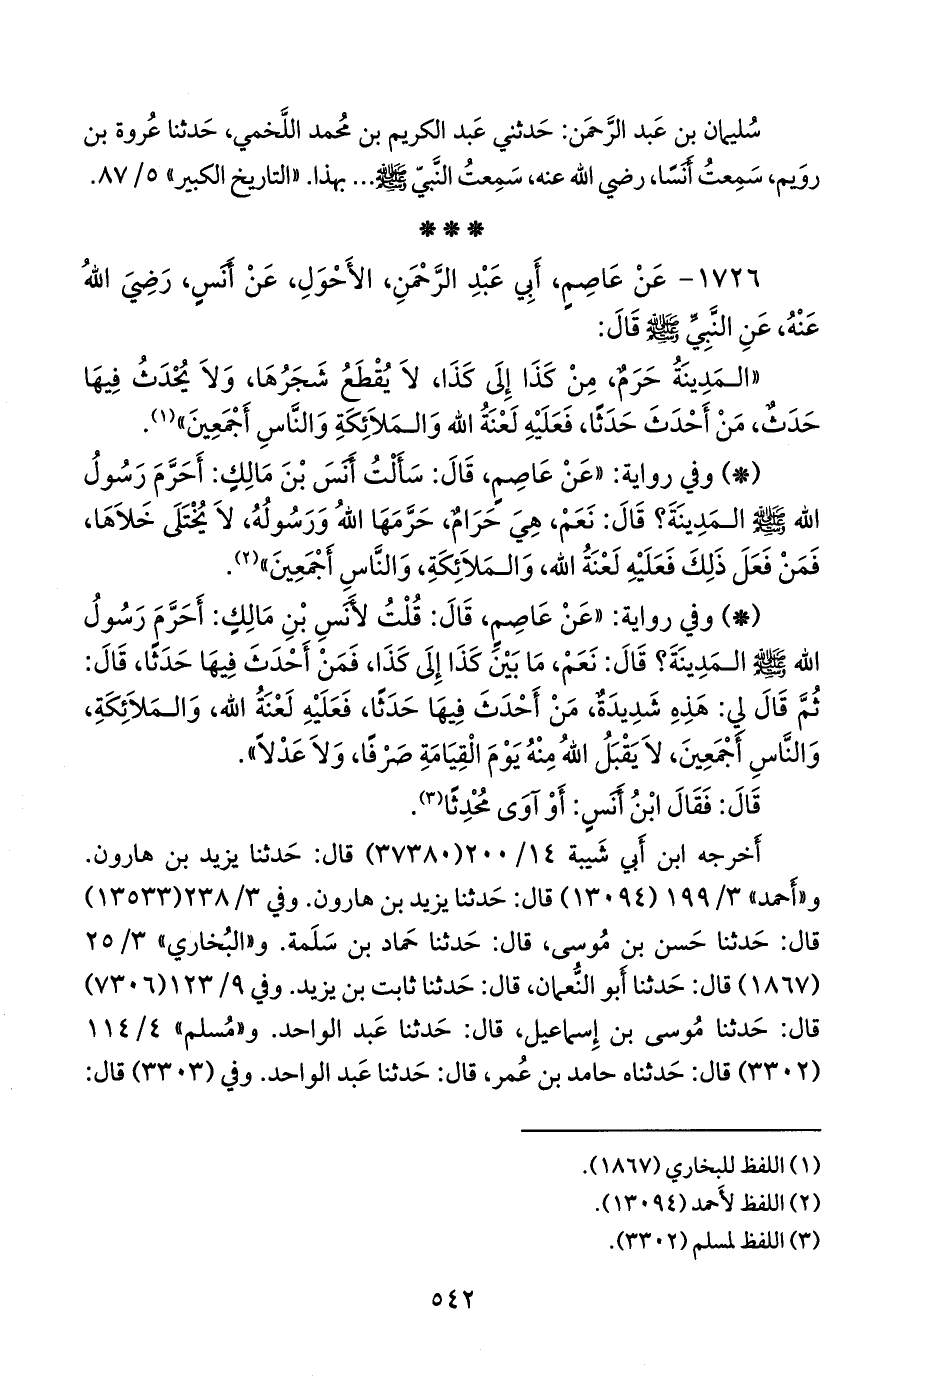 سُليمان بن عَبد الرَّحمَن: حَدثني عَبد الكريم بن مُحمد اللَّخمي، حَدثنا عُروة بن
رويم، سَمِعتُ أَنَسًا، رضي الله عنه، سَمِعتُ النَّبيّ ﷺ... بهذا. «التاريخ الكبير» ٥/ ٨٧.
* * *
١٧٢٦- عَنْ عَاصِمٍ، أَبِي عَبْدِ الرَّحْمَنِ، الأَحْوَلِ، عَنْ أَنَسٍ، رَضِيَ اللهُ
عَنْهُ، عَنِ النَّبِيِّ ﷺ قَالَ:
«الـمَدِينَةُ حَرَمٌ، مِنْ كَذَا إِلَى كَذَا، لاَ يُقْطَعُ شَجَرُهَا، وَلاَ يُحْدَثُ فِيهَا
حَدَثٌ، مَنْ أَحْدَثَ حَدَثًا، فَعَلَيْهِ لَعْنَةُ الله وَالـمَلاَئِكَةِ وَالنَّاسِ أَجْمَعِينَ»(١).
(*) وفي رواية: «عَنْ عَاصِمٍ، قَالَ: سَأَلْتُ أَنَسَ بْنَ مَالِكٍ: أَحَرَّمَ رَسُولُ
الله ﷺ الـمَدِينَةَ؟ قَالَ: نَعَمْ، هِيَ حَرَامٌ، حَرَّمَهَا اللهُ وَرَسُولُهُ، لاَ يُخْتَلَى خَلاَهَا،
فَمَنْ فَعَلَ ذَلِكَ فَعَلَيْهِ لَعْنَةُ الله، وَالـمَلاَئِكَةِ، وَالنَّاسِ أَجْمَعِينَ»(٢).
(*) وفي رواية: «عَنْ عَاصِمٍ، قَالَ: قُلْتُ لأَنَسِ بْنِ مَالِكٍ: أَحَرَّمَ رَسُولُ
الله ﷺ الـمَدِينَةَ؟ قَالَ: نَعَمْ، مَا بَيْنَ كَذَا إِلَى كَذَا، فَمَنْ أَحْدَثَ فِيهَا حَدَثًا، قَالَ:
ثُمَّ قَالَ لِي: هَذِهِ شَدِيدَةٌ، مَنْ أَحْدَثَ فِيهَا حَدَثًا، فَعَلَيْهِ لَعْنَةُ الله، وَالـمَلاَئِكَةِ،
وَالنَّاسِ أَجْمَعِينَ، لاَ يَقْبَلُ اللهُ مِنْهُ يَوْمَ الْقِيَامَةِ صَرْفًا، وَلاَ عَدْلاً».
قَالَ: فَقَالَ ابْنُ أَنَسٍ: أَوْ آوَى مُحْدِثًا(٣).
أَخرجه ابن أَبي شَيبة ١٤/ ٢٠٠(٣٧٣٨٠) قال: حَدثنا يزيد بن هارون.
و«أَحمد» ٣/ ١٩٩ (١٣٠٩٤) قال: حَدثنا يزيد بن هارون. وفي ٣/ ٢٣٨(١٣٥٣٣)
قال: حَدثنا حَسن بن مُوسى، قال: حَدثنا حَماد بن سَلَمة. و«البُخاري» ٣/ ٢٥
(١٨٦٧) قال: حَدثنا أَبو النُّعمان، قال: حَدثنا ثابت بن يزيد. وفي ٩/ ١٢٣(٧٣٠٦)
قال: حَدثنا مُوسى بن إِسماعيل، قال: حَدثنا عَبد الواحد. و«مُسلم» ٤/ ١١٤
(٣٣٠٢) قال: حَدثناه حامد بن عُمر، قال: حَدثنا عَبد الواحد. وفي (٣٣٠٣) قال:
(١) اللفظ للبخاري (١٨٦٧).
(٢) اللفظ لأَحمد (١٣٠٩٤).
(٣) اللفظ لمسلم (٣٣٠٢).
٥٤٢